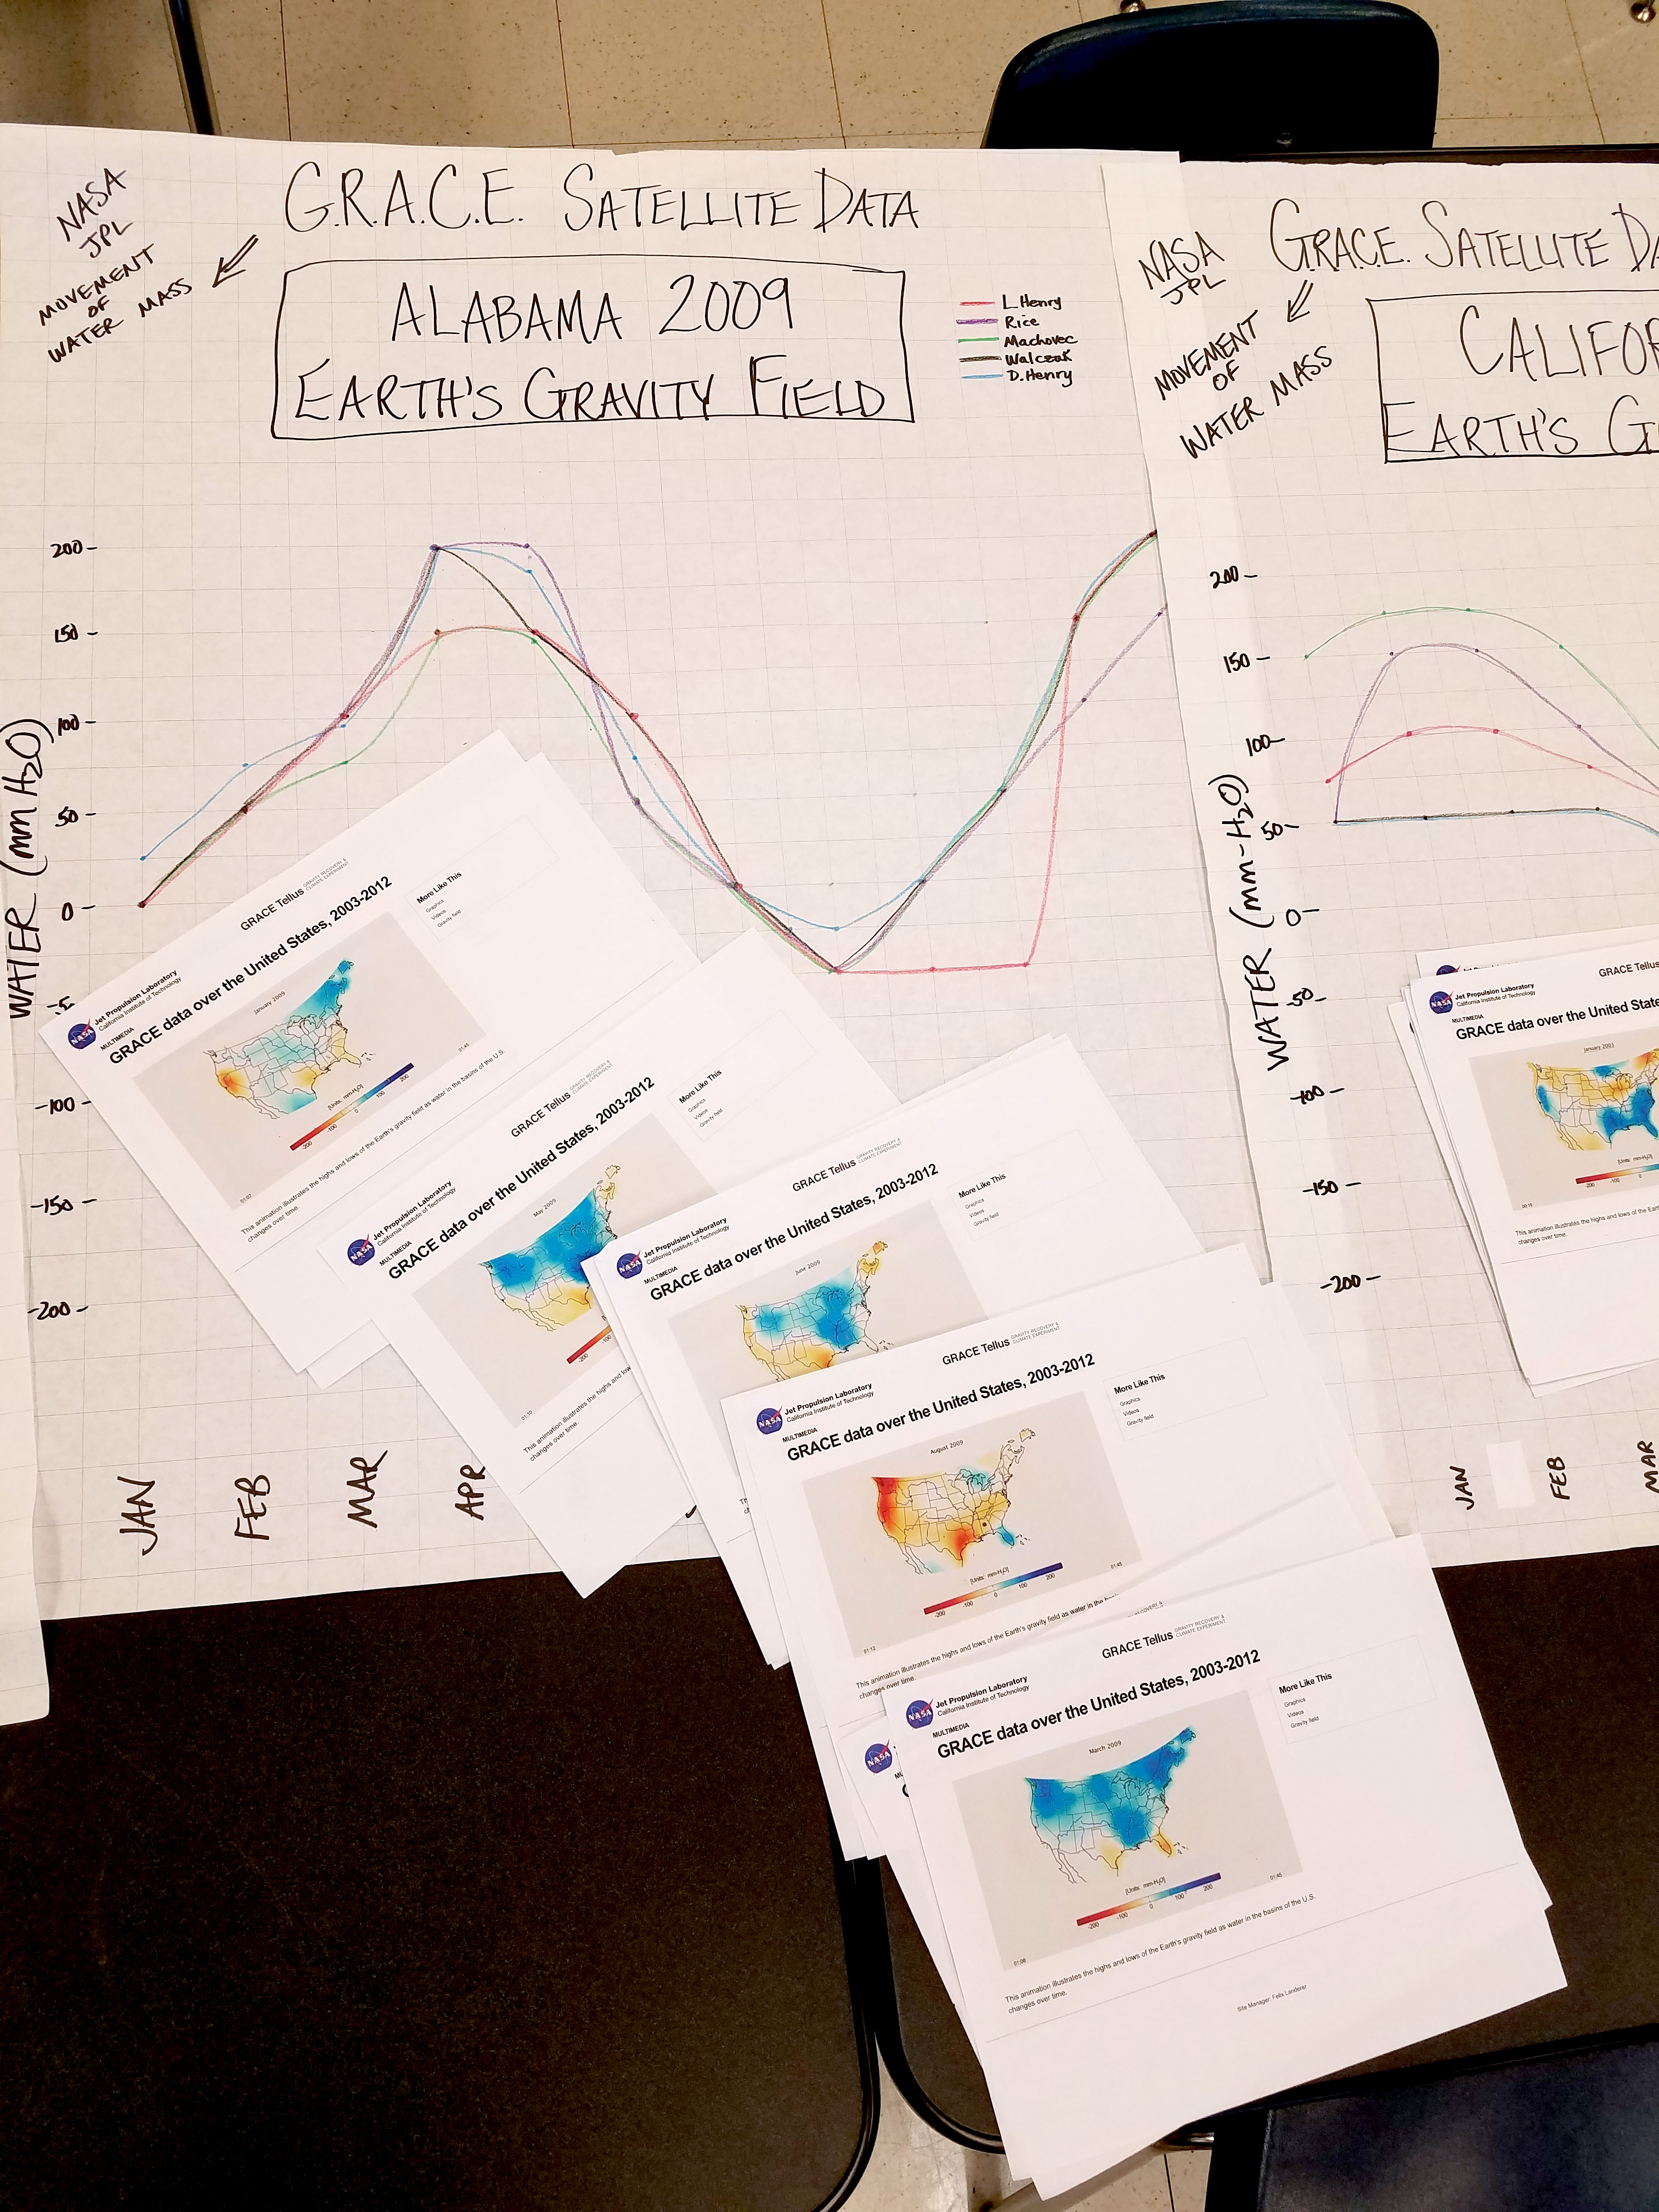 NASA
JPL
MOVEMENT
OF
WATER MASS
G.R.A.C.E. SATELLITE DATA
ALABAMA 2009
EARTH'S GRAVITY FIELD
L. Henry
Rice
Machovec
Walczak
D. Henry
WATER (mm H2O)
200
150
100
50
0
-100
-150
-200
JAN
FEB
MAR
APR
NASA
JPL
MOVEMENT
OF
WATER MASS
G.R.A.C.E. SATELLITE DA
CALIFOR
EARTH'S G
WATER (mm-H2O)
200
150
100
50
0
-50
-100
-150
-200
JAN
FEB
MAR
GRACE Tellus GRAVITY RECOVERY &
CLIMATE EXPERIMENT
NASA
Jet Propulsion Laboratory
California Institute of Technology
MULTIMEDIA
GRACE data over the United States, 2003-2012
More Like This
Graphics
Videos
Gravity field
January 2009
[Units: mm-H2O]
-200 -100 0 100 200
01:07
01:45
This animation illustrates the highs and lows of the Earth's gravity field as water in the basins of the U.S.
changes over time.
GRACE Tellus GRAVITY RECOVERY &
CLIMATE EXPERIMENT
NASA
Jet Propulsion Laboratory
California Institute of Technology
MULTIMEDIA
GRACE data over the United States, 2003-2012
More Like This
Graphics
Videos
Gravity field
May 2009
-200 -100
01:10
This animation illustrates the highs and low
changes over time.
GRACE Tellus GRAVITY RECOVERY &
CLIMATE EXPERIMENT
NASA
Jet Propulsion Laboratory
California Institute of Technology
MULTIMEDIA
GRACE data over the United States, 2003-2012
More Like This
Graphics
Videos
Gravity field
June 2009
GRACE Tellus GRAVITY RECOVERY &
CLIMATE EXPERIMENT
NASA
Jet Propulsion Laboratory
California Institute of Technology
MULTIMEDIA
GRACE data over the United States, 2003-2012
More Like This
Graphics
Videos
Gravity field
August 2009
[Units: mm-H2O]
-200 -100 0 100 200
01:12
01:45
This animation illustrates the highs and lows of the Earth's gravity field as water in the
changes over time.
GRACE Tellus GRAVITY RECOVERY &
CLIMATE EXPERIMENT
NASA
Jet Propulsion Laboratory
California Institute of Technology
MULTIMEDIA
GRACE data over the United States, 2003-2012
More Like This
Graphics
Videos
Gravity field
March 2009
[Units: mm-H2O]
-200 -100 0 100 200
01:08
01:45
This animation illustrates the highs and lows of the Earth's gravity field as water in the basins of the U.S.
changes over time.
Site Manager: Felix Landerer
NASA
GRACE Tellus
NASA
Jet Propulsion Laboratory
California Institute of Technology
MULTIMEDIA
GRACE data over the United State
January 2003
[Units: mm-H2O]
-200 -100 0
This animation illustrates the highs and lows of the Eart
changes over time.